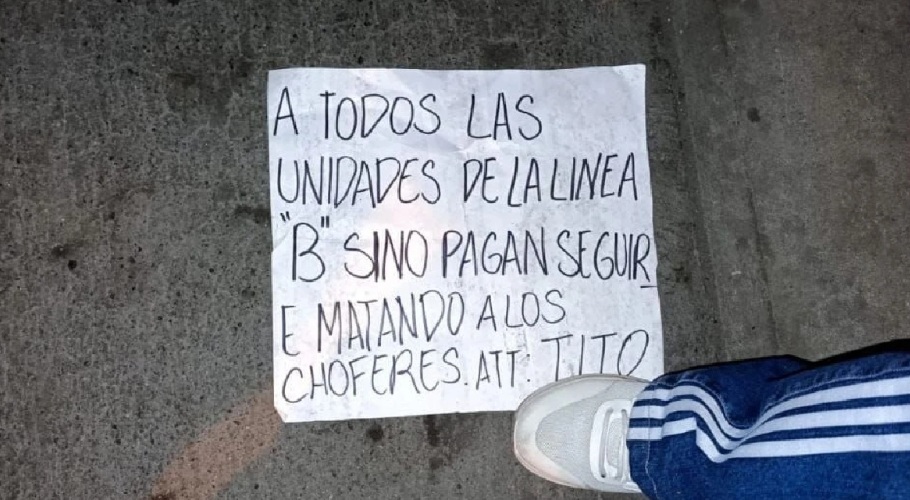 A TODOS LAS
UNIDADES DE LA LINEA
"B" SINO PAGAN SEGUIR
E MATANDO A LOS
CHOFERES. ATT: TITO